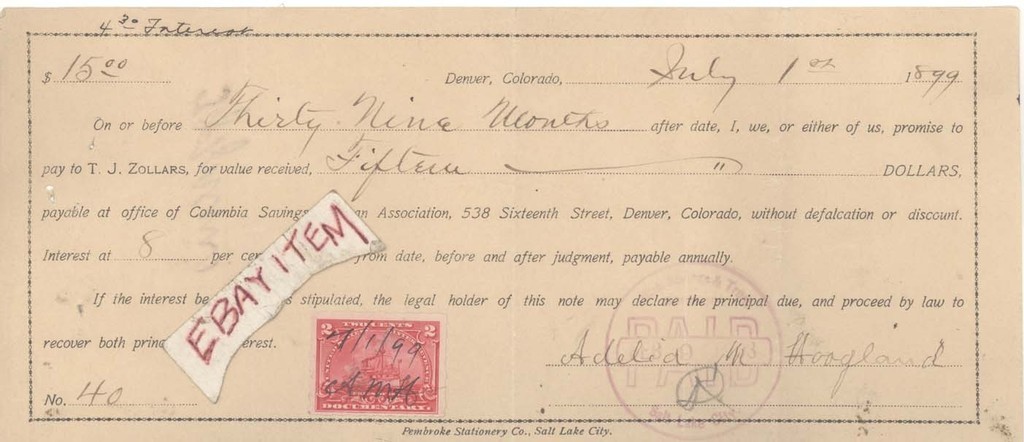 4 30 Interest
$ 15 00 Denver, Colorado, July 1st 1899
On or before Thirty Nine Months after date, I, we, or either of us, promise to
pay to T. J. ZOLLARS, for value received, Fifteen " DOLLARS,
payable at office of Columbia Savings an Association, 538 Sixteenth Street, Denver, Colorado, without defalcation or discount.
Interest at 8 per cen from date, before and after judgment, payable annually.
EBAY ITEM
If the interest be s stipulated, the legal holder of this note may declare the principal due, and proceed by law to
recover both princ erest.
TWO CENTS
2 2
7/1/99
A M H
DOCUMENTARY
Adelia M Hoogland
PAID
Salt Lake City
No. 40
Pembroke Stationery Co., Salt Lake City.